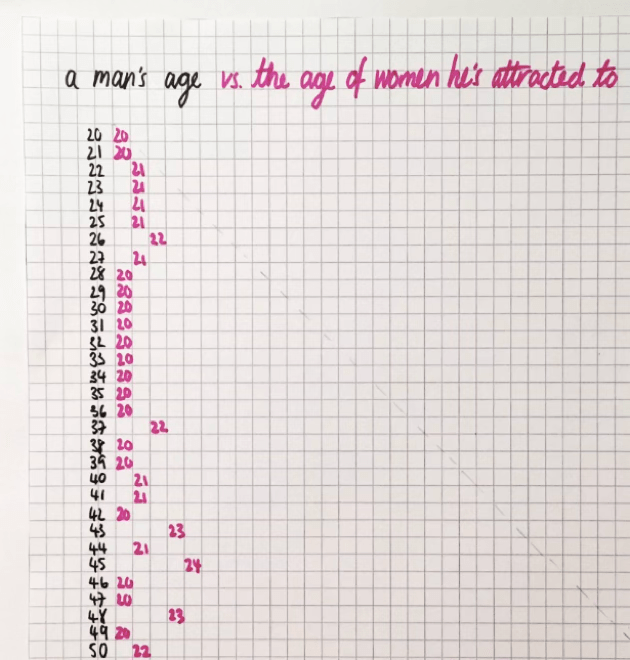 a man's age vs. the age of women he's attracted to
20 20
21 20
22 21
23 21
24 21
25 21
26 22
27 21
28 20
29 20
30 20
31 20
32 20
33 20
34 20
35 20
36 20
37 22
38 20
39 20
40 21
41 21
42 20
43 23
44 21
45 24
46 20
47 20
48 23
49 20
50 22